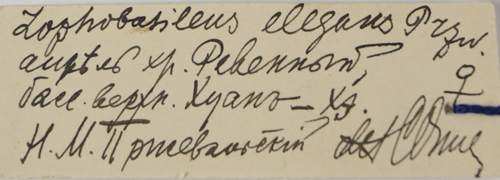 Lophobasileus elegans Przw.
апрѣль хр. Ревенный, ♀
басс. верхн. Хуанъ-Хэ.
Н. М. Пржевальскій